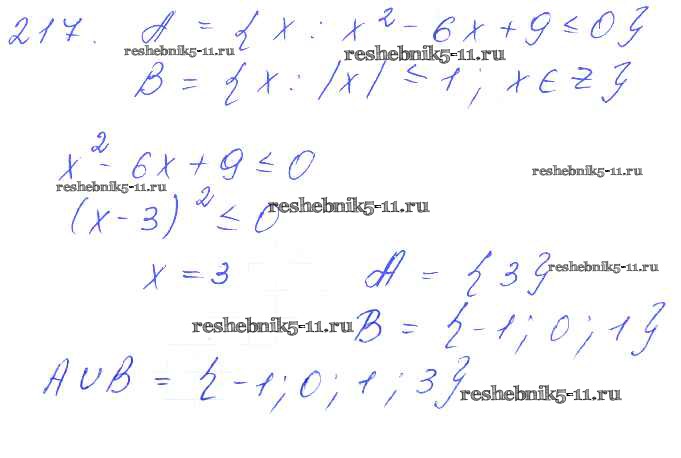 217. A = { x : x² - 6x + 9 ≤ 0 }
reshebnik5-11.ru reshebnik5-11.ru
B = { x : |x| ≤ 1 ; x ∈ Z }
x² - 6x + 9 ≤ 0
reshebnik5-11.ru reshebnik5-11.ru
(x - 3)² ≤ 0
reshebnik5-11.ru
x = 3 A = { 3 }
reshebnik5-11.ru
reshebnik5-11.ru
B = { -1 ; 0 ; 1 }
A ∪ B = { -1 ; 0 ; 1 ; 3 }
reshebnik5-11.ru